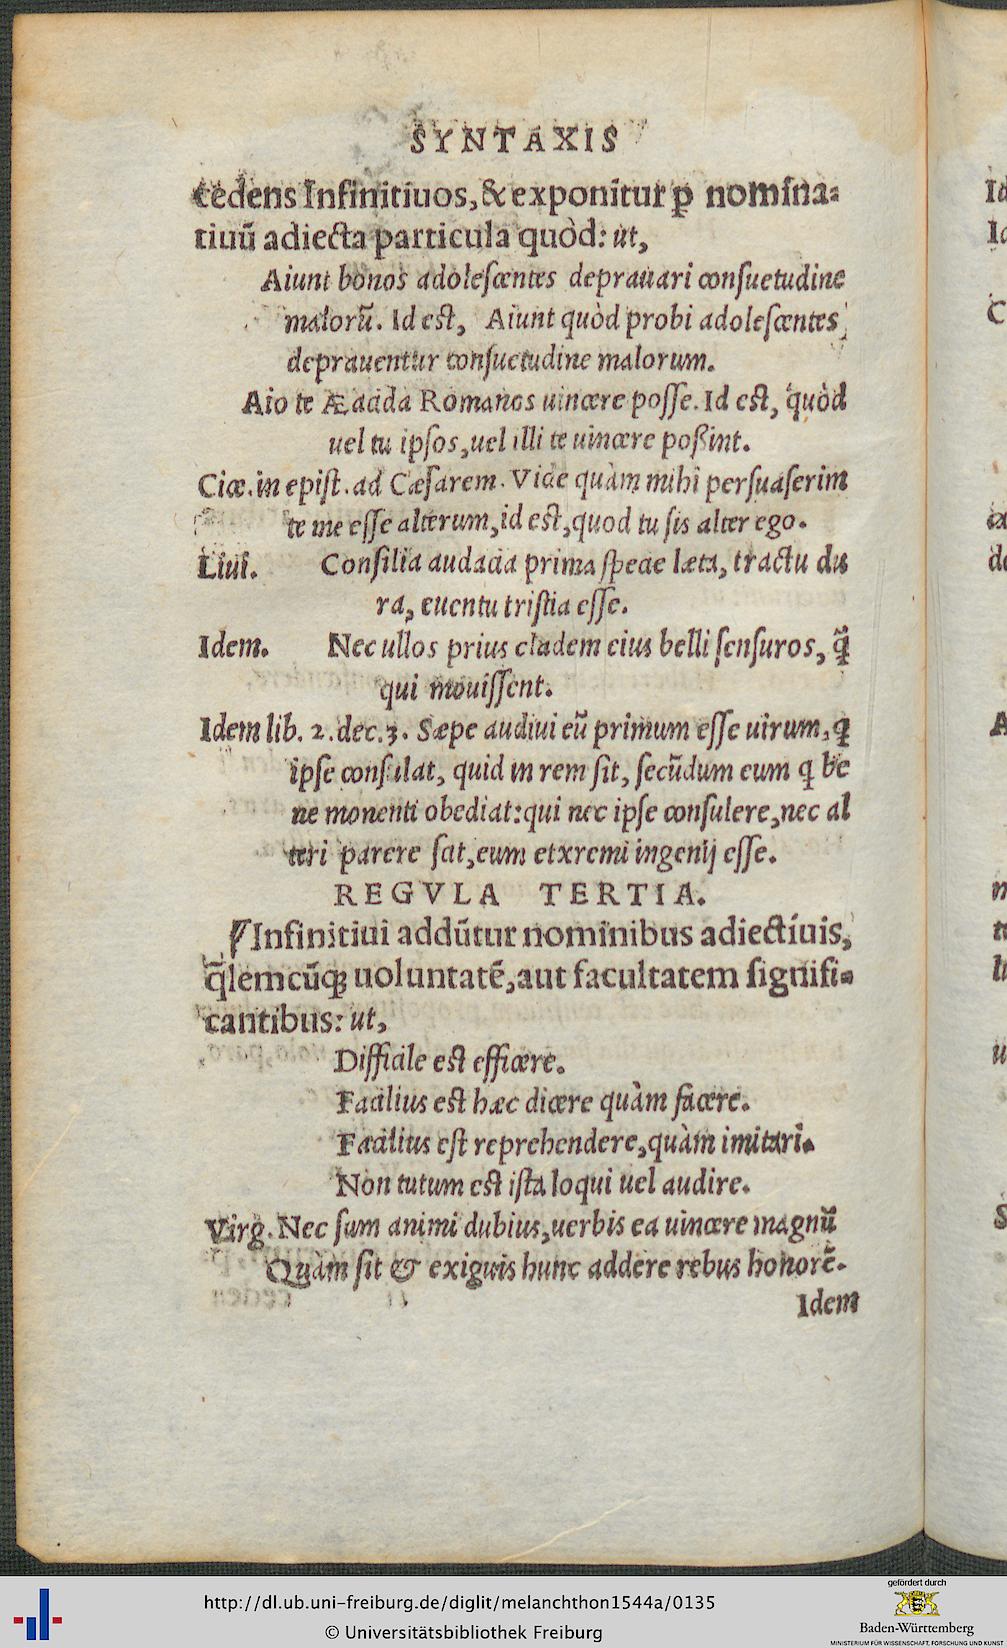 SYNTAXIS
cedens Infinitiuos, & exponitur ꝑ nomina-
tiuũ adiecta particula quòd: ut,
Aiunt bonos adolescentes deprauari consuetudine
malorũ. Id est, Aiunt quòd probi adolescentes
deprauentur consuetudine malorum.
Aio te Æacida Romanos uincere posse. Id est, quòd
uel tu ipsos, uel illi te uincere poßint.
Cice. in epist. ad Cæsarem. Vide quàm mihi persuaserim
te me esse alterum, id est, quod tu sis alter ego.
Liui. Consilia audacia prima specie læta, tractu du
ra, euentu tristia esse.
Idem. Nec ullos prius cladem eius belli sensuros, q̃
qui mouissent.
Idem lib. 2. dec. 3. Sæpe audiui eũ primum esse uirum, q
ipse consulat, quid in rem sit, secũdum eum q be
ne monenti obediat: qui nec ipse consulere, nec al
teri parere sciat, eum etxremi ingenij esse.
REGVLA TERTIA.
Infinitiui addũtur nominibus adiectíuis,
q̃lemcũq; uoluntatẽ, aut facultatem signifi-
cantibus: ut,
Difficile est efficere.
Facilius est hæc dicere quàm facere.
Facilius est reprehendere, quàm imitari.
Non tutum est ista loqui uel audire.
Virg. Nec sum animi dubius, uerbis ea uincere magnũ
Quàm sit & exiguis hunc addere rebus honorẽ.
Idem
http://dl.ub.uni-freiburg.de/diglit/melanchthon1544a/0135
© Universitätsbibliothek Freiburg
gefördert durch
Baden-Württemberg
MINISTERIUM FÜR WISSENSCHAFT, FORSCHUNG UND KUNST